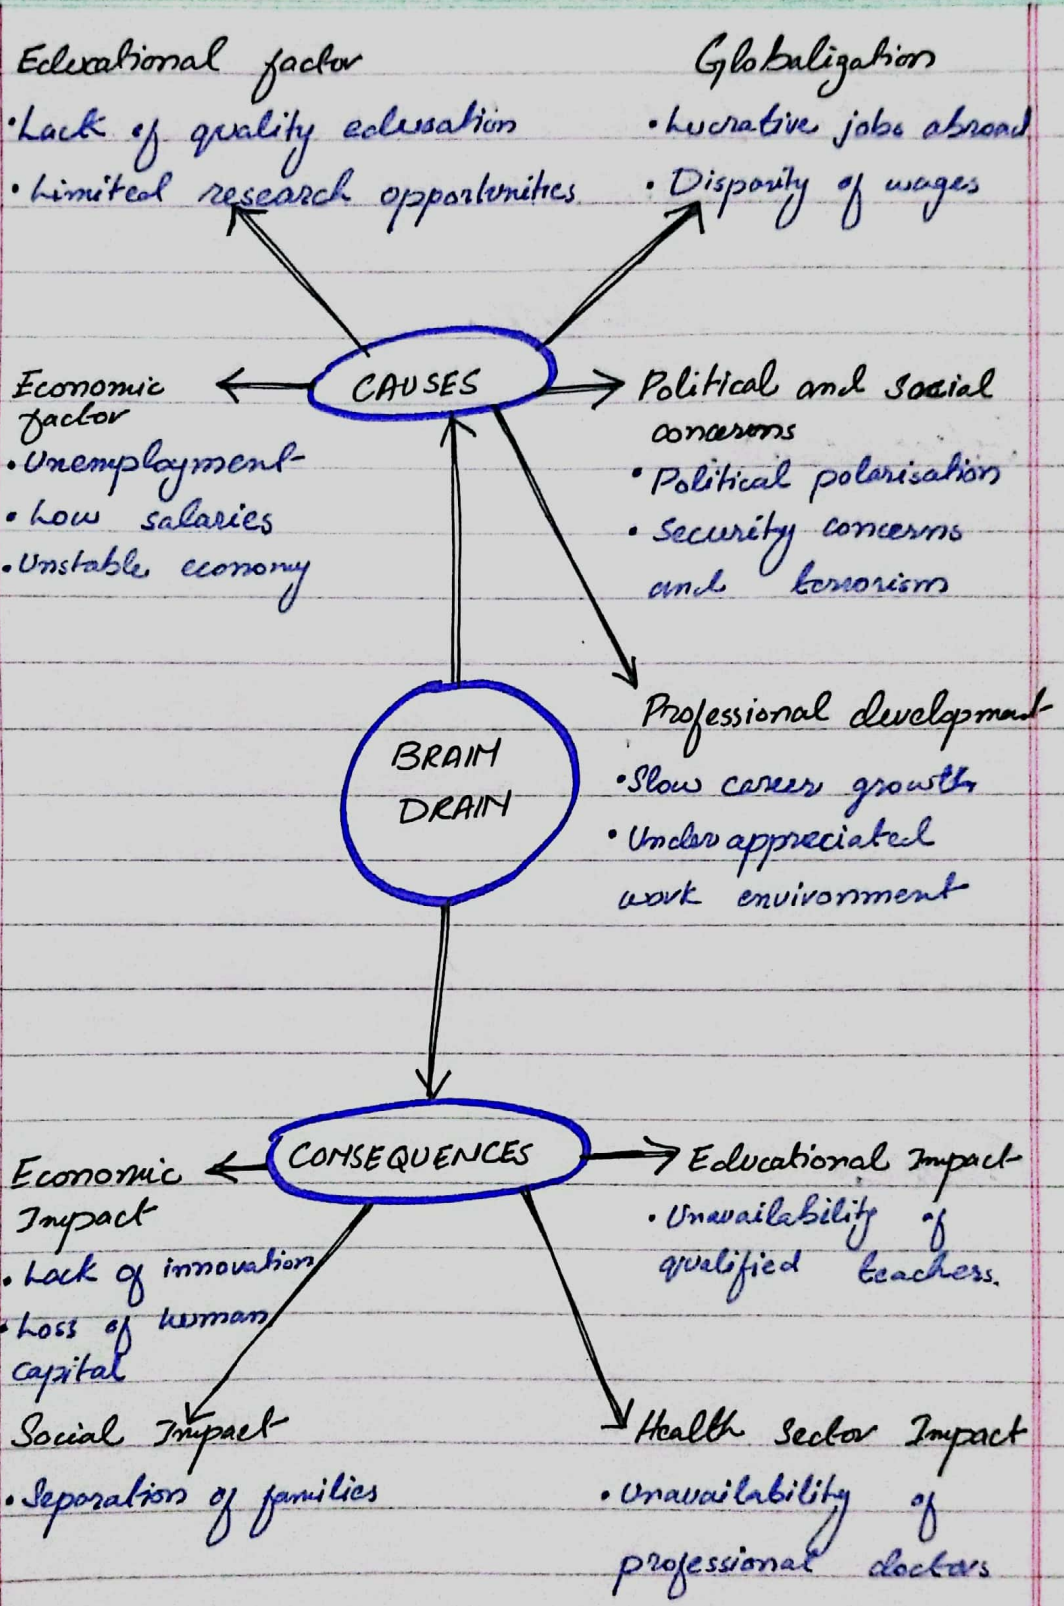 Educational factor
• Lack of quality education
• Limited research opportunities
Globalization
• Lucrative jobs abroad
• Disparity of wages
CAUSES
Economic
factor
• Unemployment
• Low salaries
• Unstable economy
Political and social
concerns
• Political polarisation
• Security concerns
and terrorism
BRAIN
DRAIN
Professional development
• Slow career growth
• Under appreciated
work environment
CONSEQUENCES
Economic
Impact
• Lack of innovation
• Loss of human
capital
Educational Impact
• Unavailability of
qualified teachers.
Social Impact
• Separation of families
Health Sector Impact
• Unavailability of
professional doctors